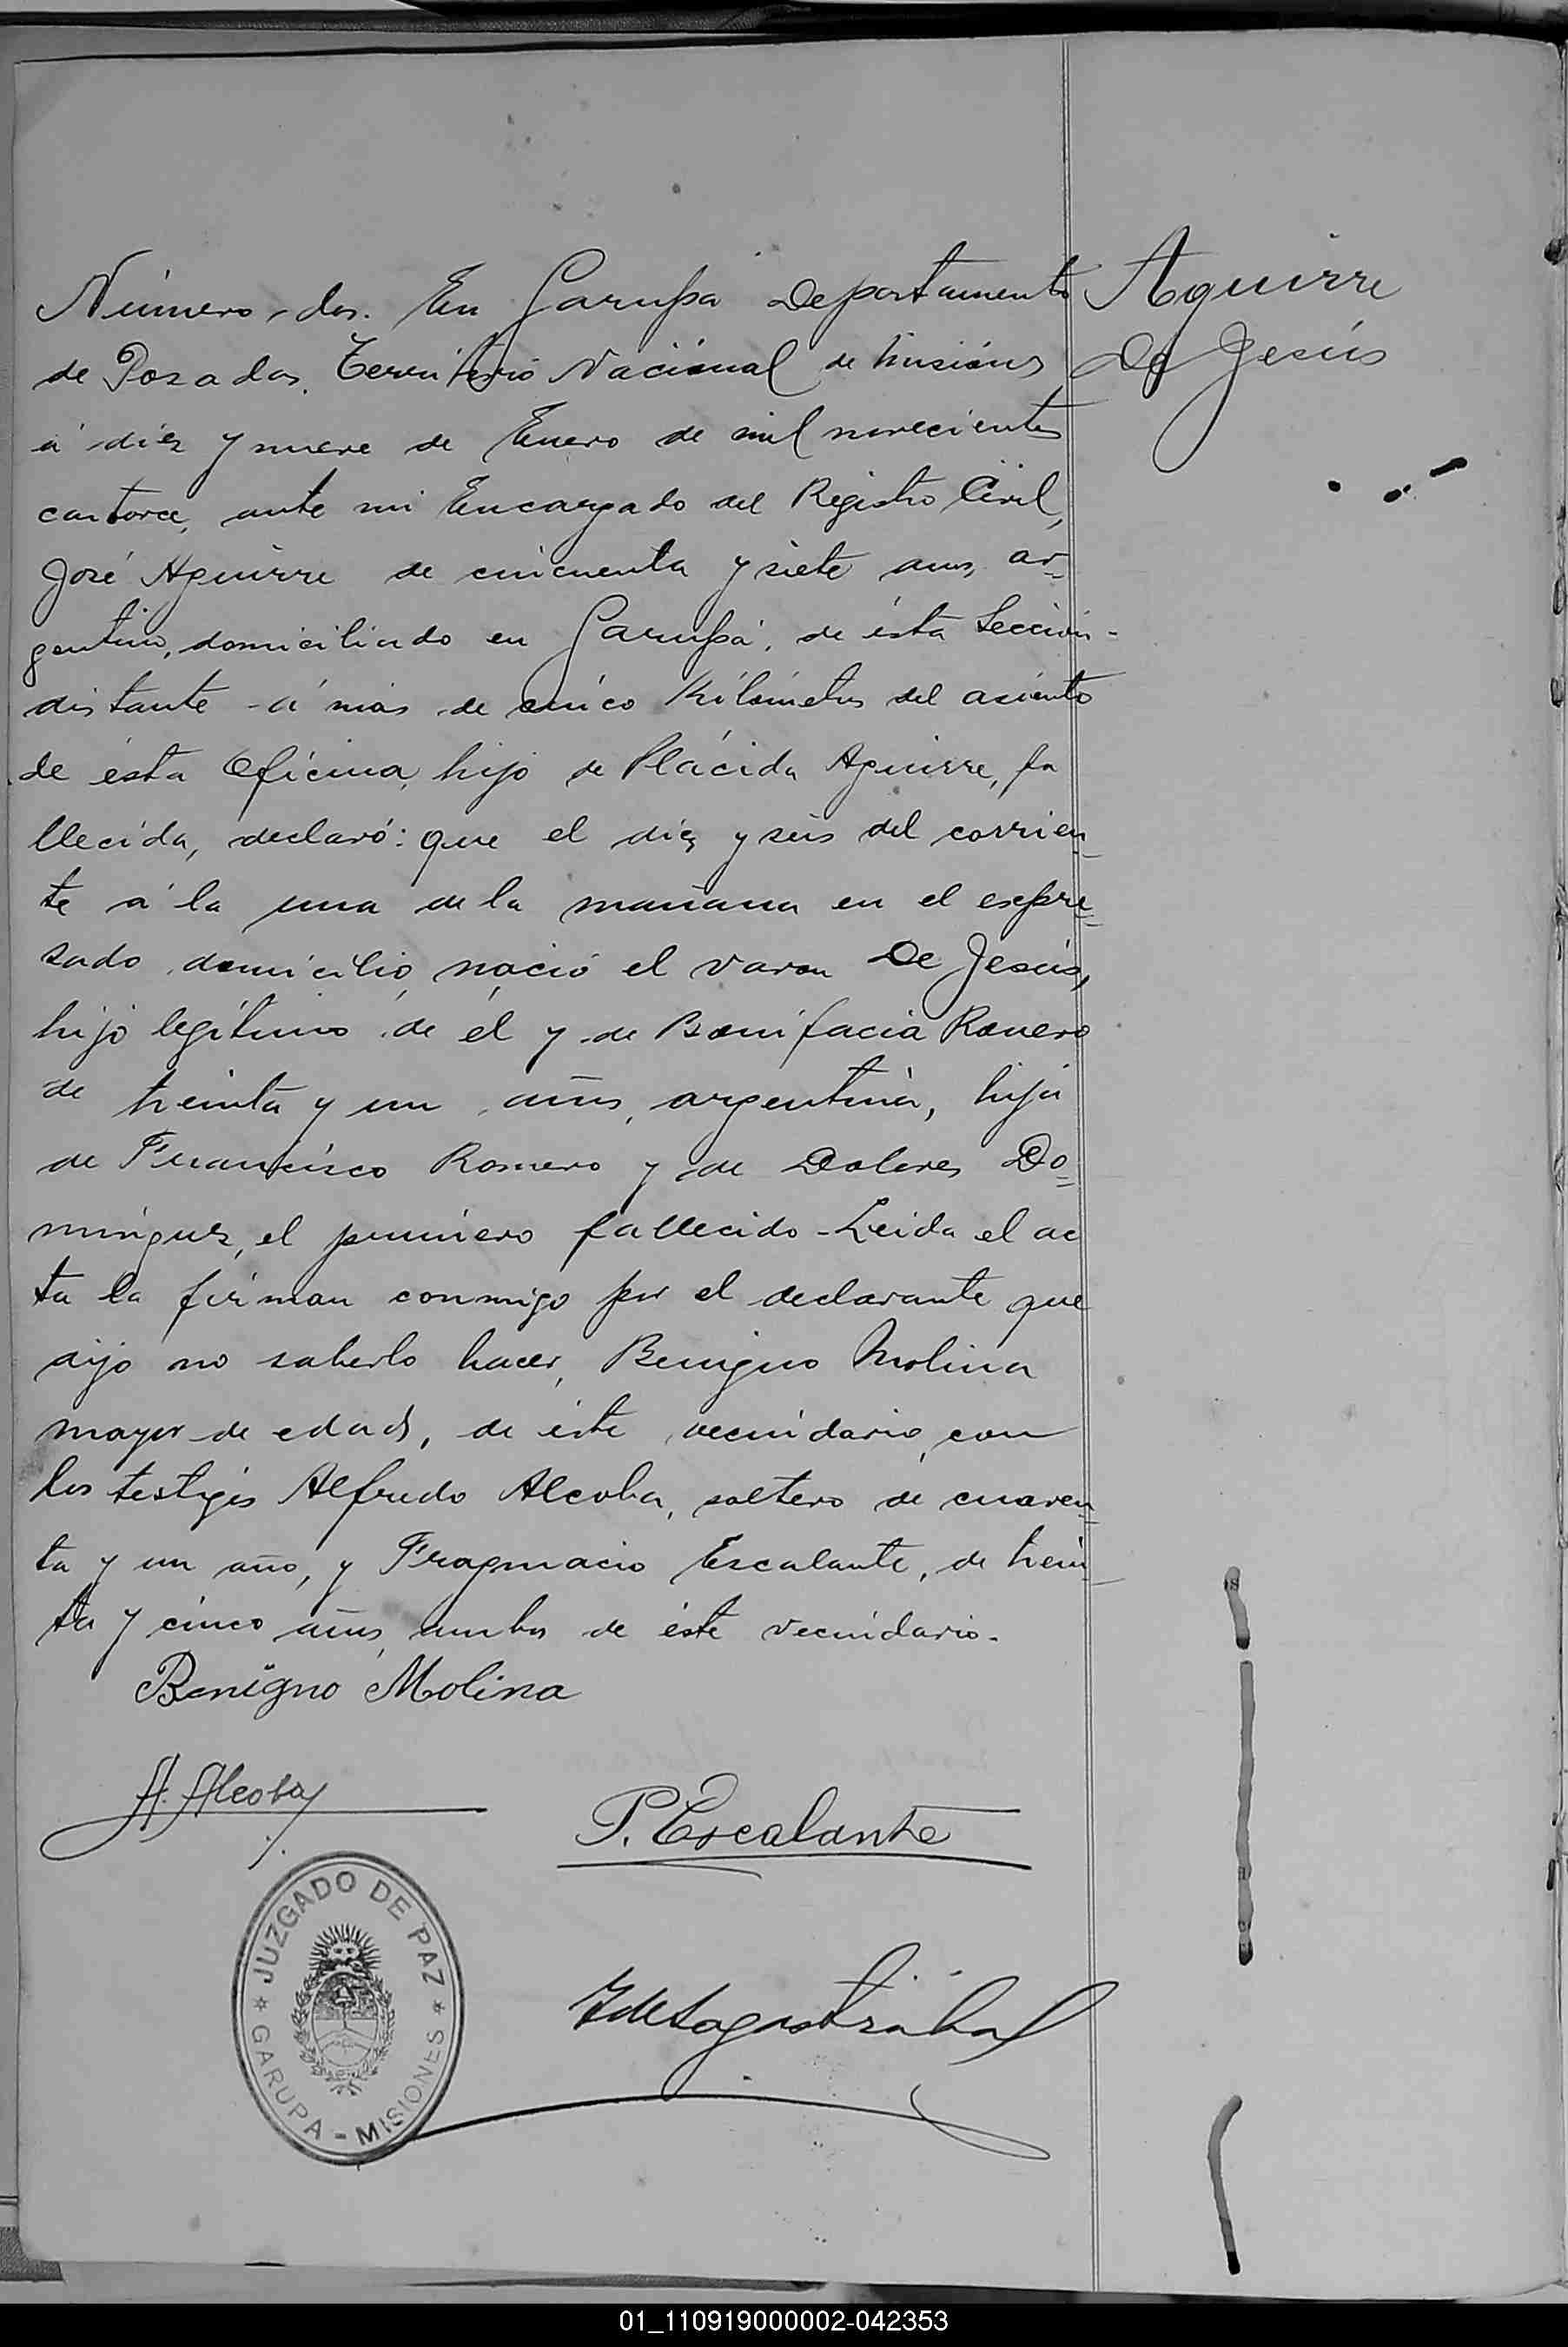 Número dos. En Garupá Departamento
de Posadas, Territorio Nacional de Misiones
á diez y nueve de Enero de mil novecientos
cartorce, ante mi Encargado del Registro Civil,
José Aguirre de cincuenta y siete años, ar-
gentino, domiciliado en Garupá, de ésta Sección-
distante á más de cinco Kilómetros del asiento
de ésta Oficina, hijo de Plácida Aguirre, fa
llecida, declaró: que el diez y seis del corrien-
te á la una de la mañana en el expre-
sado domicilio, nació el varon De Jesús,
hijo legítimo de él y de Bonifacia Romero
de treinta y un años, argentina, hija
de Francisco Romero y de Dolores Do-
minguez, el primero fallecido - Leida el ac
ta la firman conmigo por el declarante que
dijo no saberlo hacer, Benigno Molina
mayor de edad, de éste vecindario, con
los testigos Alfredo Alcoba, soltero de cuaren-
ta y un año, y Pragmacio Escalante, de trein-
ta y cinco años, ambos de éste vecindario.
Aguirre
De Jesús
Benigno Molina
A. Alcoba
P. Escalante
JUZGADO DE PAZ
GARUPA - MISIONES
01_110919000002-042353